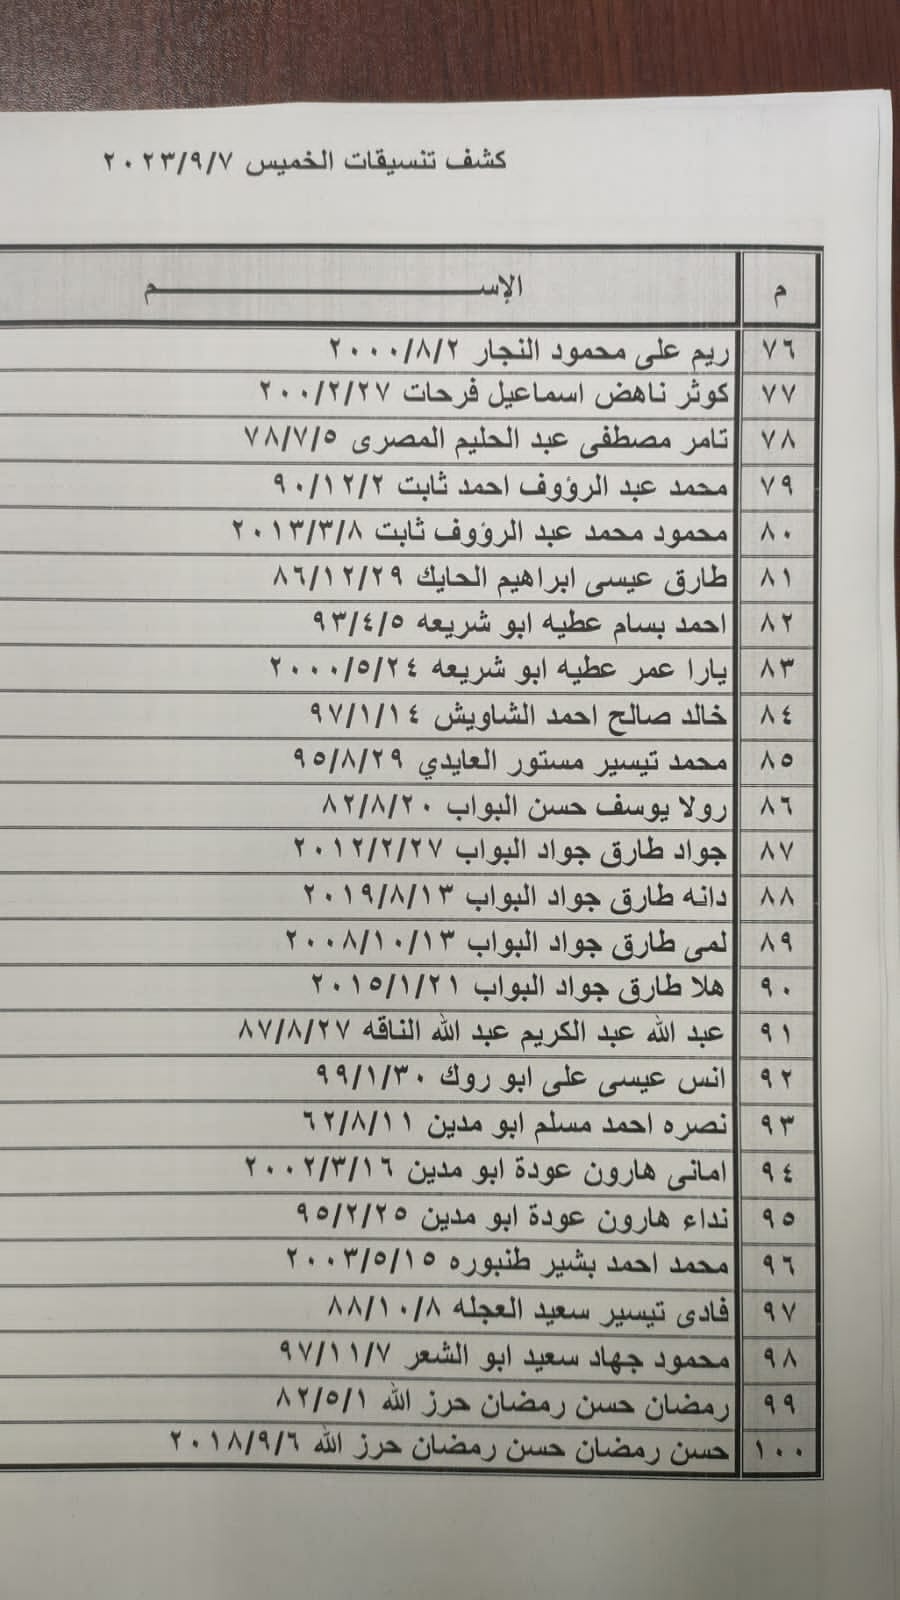 كشف تنسيقات الخميس ٢٠٢٣/٩/٧
م الإســــــــــــــم
٧٦ ريم على محمود النجار ٢٠٠٠/٨/٢
٧٧ كوثر ناهض اسماعيل فرحات ٢٠٠/٢/٢٧
٧٨ تامر مصطفى عبد الحليم المصرى ٧٨/٧/٥
٧٩ محمد عبد الرؤوف احمد ثابت ٩٠/١٢/٢
٨٠ محمود محمد عبد الرؤوف ثابت ٢٠١٣/٣/٨
٨١ طارق عيسى ابراهيم الحايك ٨٦/١٢/٢٩
٨٢ احمد بسام عطيه ابو شريعه ٩٣/٤/٥
٨٣ يارا عمر عطيه ابو شريعه ٢٠٠٠/٥/٢٤
٨٤ خالد صالح احمد الشاويش ٩٧/١/١٤
٨٥ محمد تيسير مستور العايدي ٩٥/٨/٢٩
٨٦ رولا يوسف حسن البواب ٨٢/٨/٢٠
٨٧ جواد طارق جواد البواب ٢٠١٢/٢/٢٧
٨٨ دانه طارق جواد البواب ٢٠١٩/٨/١٣
٨٩ لمى طارق جواد البواب ٢٠٠٨/١٠/١٣
٩٠ هلا طارق جواد البواب ٢٠١٥/١/٢١
٩١ عبد الله عبد الكريم عبد الله الناقه ٨٧/٨/٢٧
٩٢ انس عيسى على ابو روك ٩٩/١/٣٠
٩٣ نصره احمد مسلم ابو مدين ٦٢/٨/١١
٩٤ امانى هارون عودة ابو مدين ٢٠٠٢/٣/١٦
٩٥ نداء هارون عودة ابو مدين ٩٥/٢/٢٥
٩٦ محمد احمد بشير طنبوره ٢٠٠٣/٥/١٥
٩٧ فادى تيسير سعيد العجله ٨٨/١٠/٨
٩٨ محمود جهاد سعيد ابو الشعر ٩٧/١١/٧
٩٩ رمضان حسن رمضان حرز الله ٨٢/٥/١
١٠٠ حسن رمضان حسن رمضان حرز الله ٢٠١٨/٩/٦